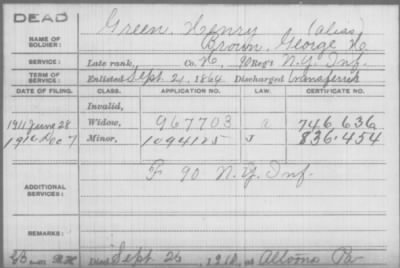 DEAD
NAME OF SOLDIER: Green, Henry (alias)
Brown, George H.
SERVICE: Late rank, Co. H, 90 Reg't N.Y. Inf.
TERM OF SERVICE: Enlisted Sept. 21, 1864. Discharged Transferred
DATE OF FILING. CLASS. APPLICATION NO. LAW. CERTIFICATE NO.
Invalid,
1911 June 28 Widow, 967703 a 746 636
1916 Dec 7 Minor, 1094125 J 836.454
ADDITIONAL SERVICES: F 90 N.Y. Inf.
REMARKS:
Died Sept 26, at Altoona Pa